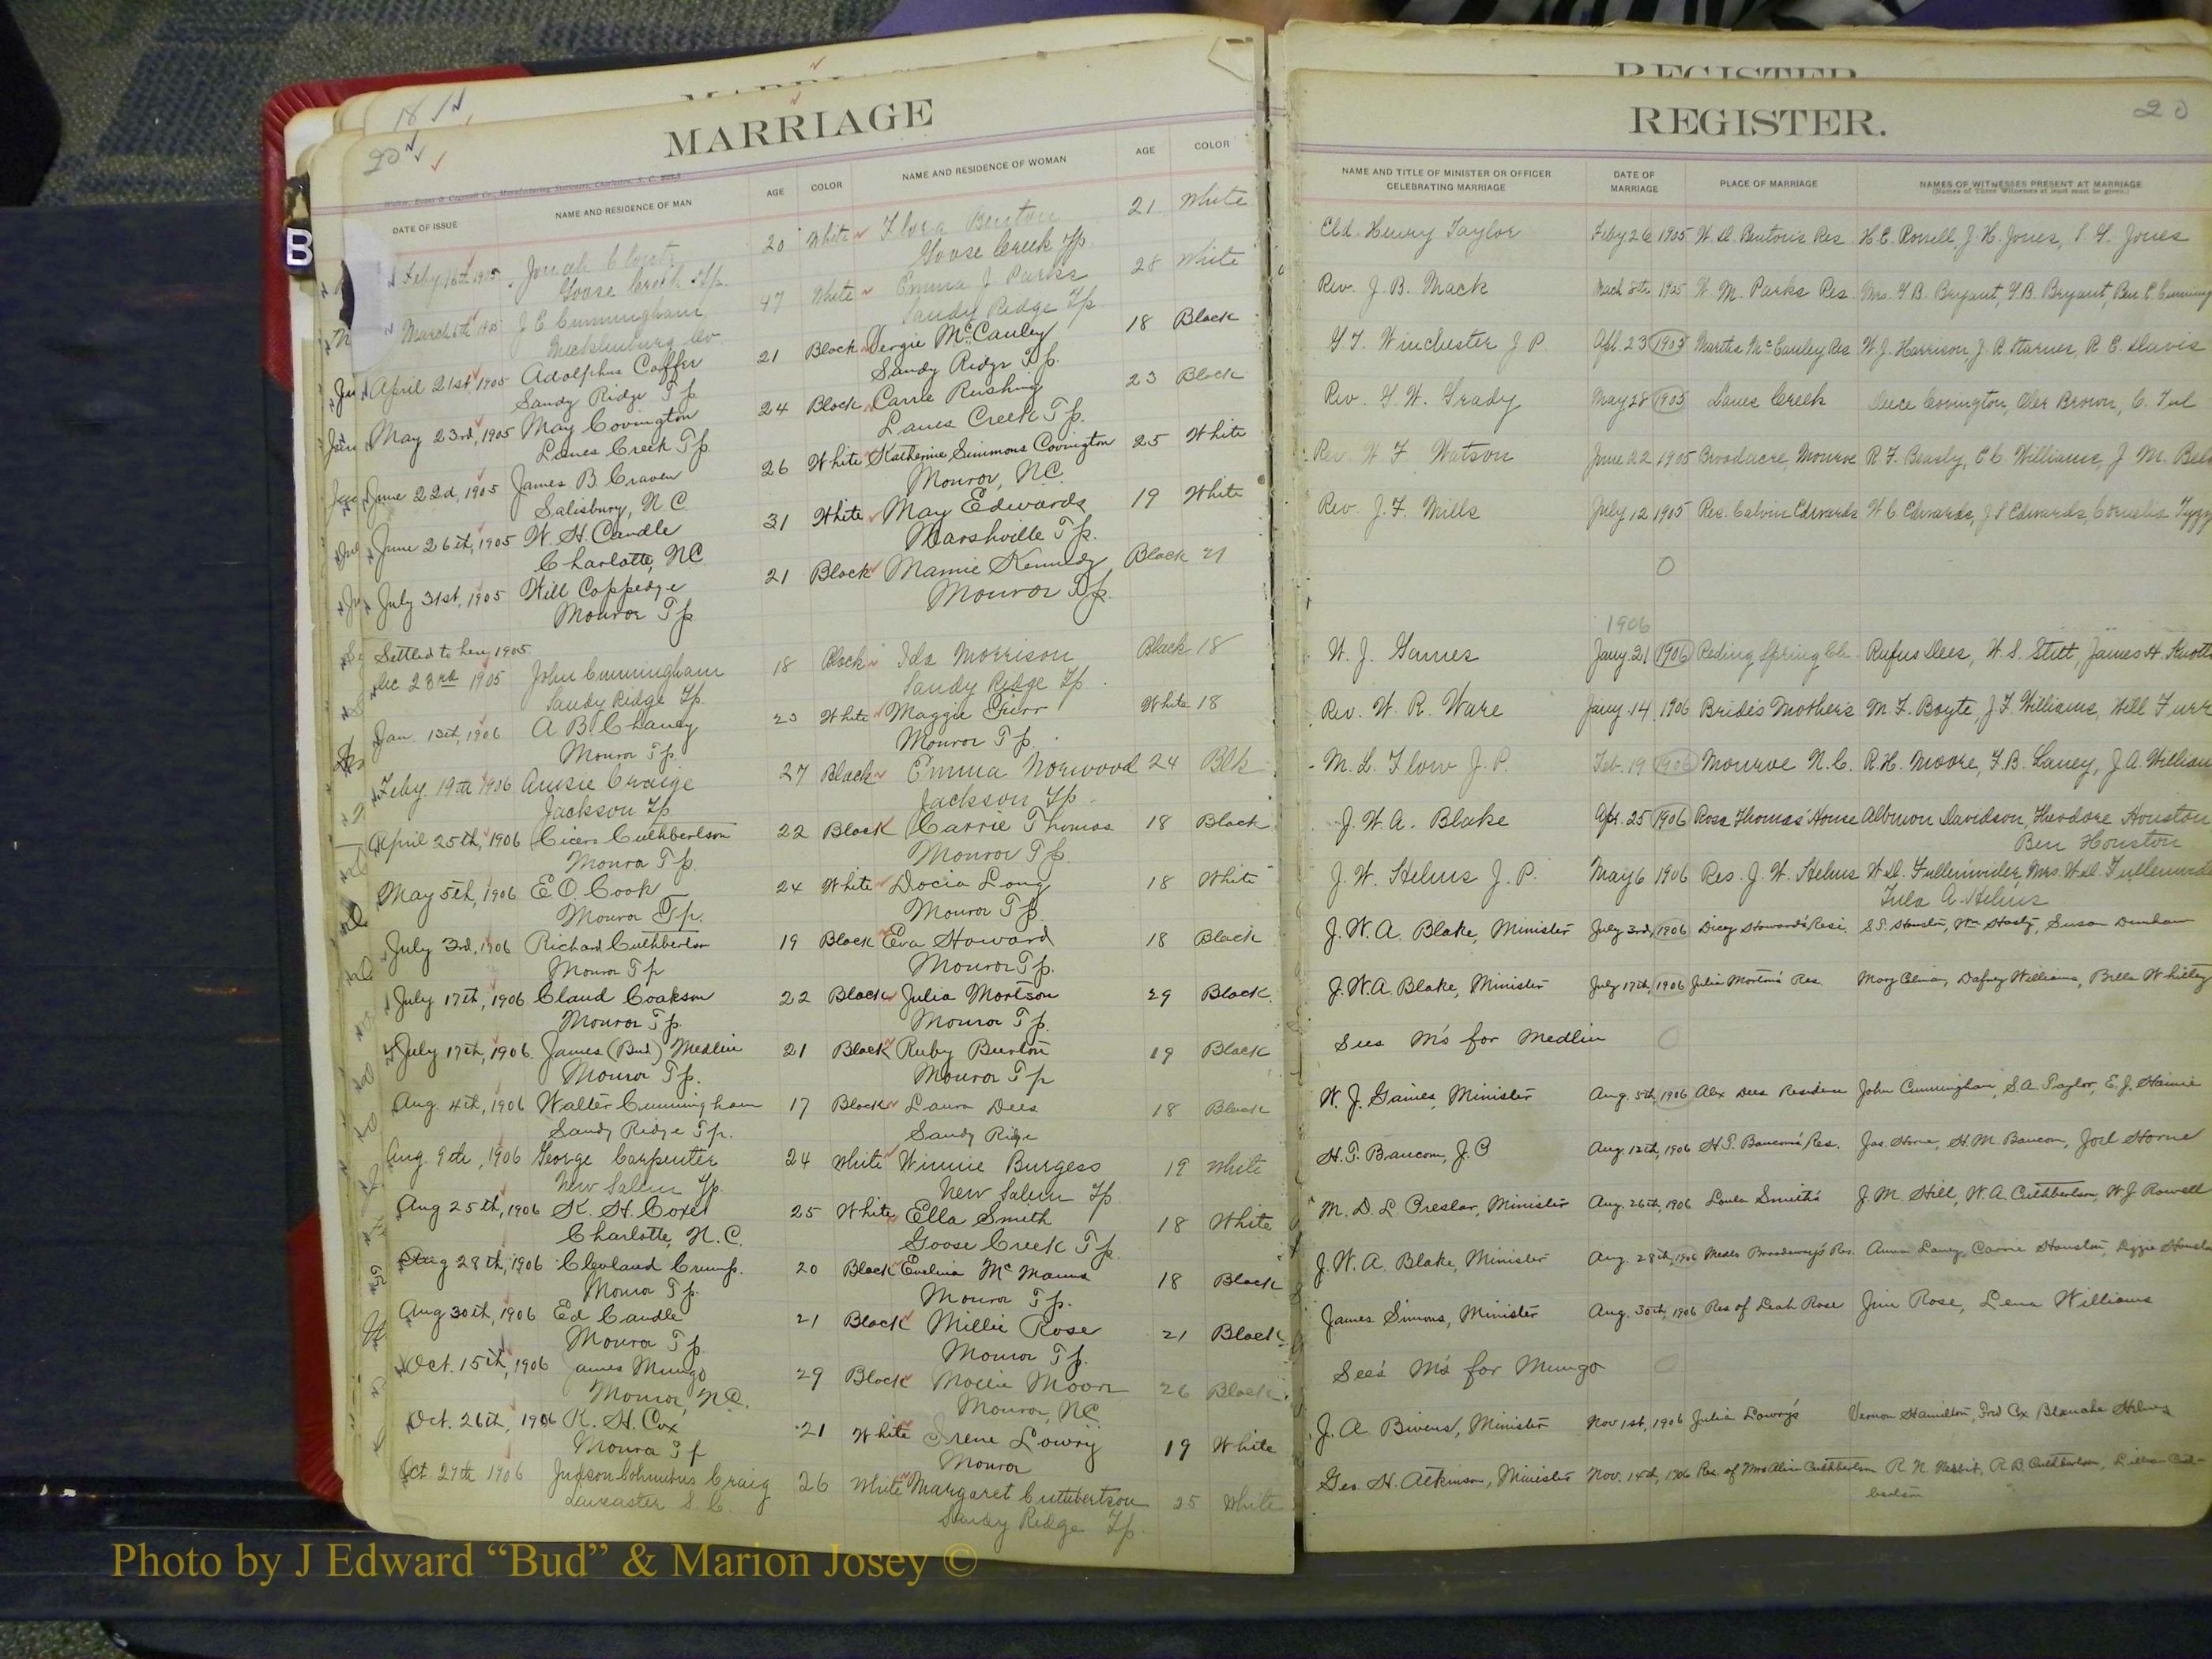 MARRIAGE
REGISTER
18
MARRIAGE
REGISTER.
20
20
DATE OF ISSUE
NAME AND RESIDENCE OF MAN
AGE
COLOR
NAME AND RESIDENCE OF WOMAN
AGE
COLOR
NAME AND TITLE OF MINISTER OR OFFICER
CELEBRATING MARRIAGE
DATE OF
MARRIAGE
PLACE OF MARRIAGE
NAMES OF WITNESSES PRESENT AT MARRIAGE
(Names of Three Witnesses at least must be given.)
B
Feby 16th 1905 Jonah Clontz 20 White Flora Benton 21 White
Goose Creek Tp. Goose Creek Tp.
March 6th 1905 J E Cunningham 47 White Emma J Parks 28 White
Mecklenburg Co Sandy Ridge Tp
April 21st, 1905 Adolphus Coffer 21 Black Vergie McCauley 18 Black
Sandy Ridge Tp Sandy Ridge Tp.
May 23rd, 1905 May Covington 24 Black Carrie Rushing 23 Black
Lanes Creek Tp. Lanes Creek Tp.
June 22d, 1905 James B. Craven 26 White Katherine Simmons Covington 25 White
Salisbury, N C Monroe, NC.
June 26th, 1905 W. H. Caudle 31 White May Edwards 19 White
Charlotte, NC Marshville Tp.
July 31st, 1905 Will Coppedge 21 Black Mamie Kennedy Black 21
Monroe Tp Monroe Tp.
Settled to here 1905
Dec 23rd 1905 John Cunningham 18 Black Ida Morrison Black 18
Sandy Ridge Tp Sandy Ridge Tp.
Jan. 13th, 1906 A B. Chaney 23 White Maggie Furr White 18
Monroe Tp. Monroe Tp.
Feby. 19th 1906 Amsie Craige 27 Black Emma Norwood 24 Blk
Jackson Tp Jackson Tp.
April 25th, 1906 Cicero Cuthbertson 22 Black Carrie Thomas 18 Black
Monroe Tp. Monroe Tp.
May 5th, 1906 E O. Cook 24 White Docia Long 18 White
Monroe Tp. Monroe Tp.
July 3rd, 1906 Richard Cuthbertson 19 Black Eva Howard 18 Black
Monroe Tp Monroe Tp.
July 17th, 1906 Claud Coakson 22 Black Julia Morton 29 Black
Monroe Tp. Monroe Tp.
July 17th, 1906. James (Bud) Medlin 21 Black Ruby Burton 19 Black
Monroe Tp. Monroe Tp
Aug. 4th, 1906 Walter Cunningham 17 Black Laura Dees 18 Black
Sandy Ridge Tp. Sandy Ridge
Aug. 9th, 1906 George Carpenter 24 White Winnie Burgess 19 White
New Salem Tp. New Salem Tp.
Aug 25th, 1906 K. H. Coxe 25 White Ella Smith 18 White
Charlotte, N.C. Goose Creek Tp
Aug 28th, 1906 Cleveland Crump. 20 Black Evelina McManus 18 Black
Monroe Tp. Monroe Tp.
Aug 30th, 1906 Ed Caudle 21 Black Millie Rose 21 Black
Monroe Tp. Monroe Tp.
Oct. 15th, 1906 James Mungo 29 Black Mollie Moore 26 Black
Monroe, NC. Monroe, NC
Oct. 26th, 1906 K. H. Cox 21 White Irene Lowry 19 White
Monroe Tp Monroe
Oct. 27th 1906 Judson Columbus Craig 26 White Margaret Cuthbertson 25 White
Lancaster S. C. Sandy Ridge Tp.
Eld. Henry Taylor Feby 26 1905 W. D. Benton's Res H. E. Rowell, J. H. Jones, Jones
Rev. J. B. Mack March 8th 1905 W. M. Parks Res Mrs. Y. B. Bryant, Y. B. Bryant, Ben C. Cunning
Winchester J P Apl. 23 1905 Martha McCauley Res W. J. Harrison, J. R. Starnes, R. E. Davis
Rev. Grady May 28 1905 Lanes Creek Covington, Brown, C.
Rev. W F Watson June 22 1905 Broadacre, Monroe R. F. Beasly, C C. Williams, J. M. Belk
Rev. J. F. Mills July 12 1905 Res. Calvin Edwards W C Edwards, J S Edwards, Cornelia
1906
W. J. Gaines Jany 21 1906 Reding Spring Ch. Rufus Dees, W. S. Stitt, James H. Knotts
Rev. W. R. Ware Jany. 14 1906 Bride's Mother's M. F. Boyte, J F. Williams, Will Furr
M. L. Flow J. P. Feb. 19 1906 Monroe N. C. R. H. Moore, F. B. Laney, J A. William
J. W. A. Blake Apr. 25 1906 Rosa Thomas' House Albinion Davidson, Theodore Houston
Ben Houston
J. W. Helms J. P. May 6 1906 Res. J. W. Helms W. D. Fullenwider, Mrs. W. D. Fullenwide
Tula A. Helms
J. W. A. Blake, Minister July 3rd, 1906 Dicey Howard's Resi. S. S. Houston, Wm Hasty, Susan Dunham
J. W. A. Blake, Minister July 17th, 1906 Julia Morton's Res. Mary Dafney Williams, Bella Whitley
See M's for Medlin
W. J. Gaines, Minister Aug. 5th, 1906 Alex Dees Residence John Cunningham, S. A. Taylor, E. J. Hamie
H. T. Baucom, J. P Aug. 12th, 1906 H. T. Baucom's Res. Jas. Horne, H. M. Baucom, Joel Horne
M. D. L. Preslar, Minister Aug. 26th, 1906 Loula Smith's J. M. Hill, W. A. Cuthbertson, W. J. Rowell
J. W. A. Blake, Minister Aug. 28th, 1906 Broadaway's Res. Anna Laney, Carrie Houston, Lizzie Housto
James Simons, Minister Aug. 30th, 1906 Res of Leah Rose Jim Rose, Lena Williams
See M's for Mungo
J. A Bivens, Minister Nov 1st, 1906 Julia Lowry's Vernon Hamilton, Fred Cox Blanche Helms
Geo. H. Atkinson, Minister Nov. 14th, 1906 Res. of Mrs Alice Cuthbertson R. N. Nesbit, R. B. Cuthbertson, Lillian Cuth-
bertson
Photo by J Edward “Bud” & Marion Josey ©